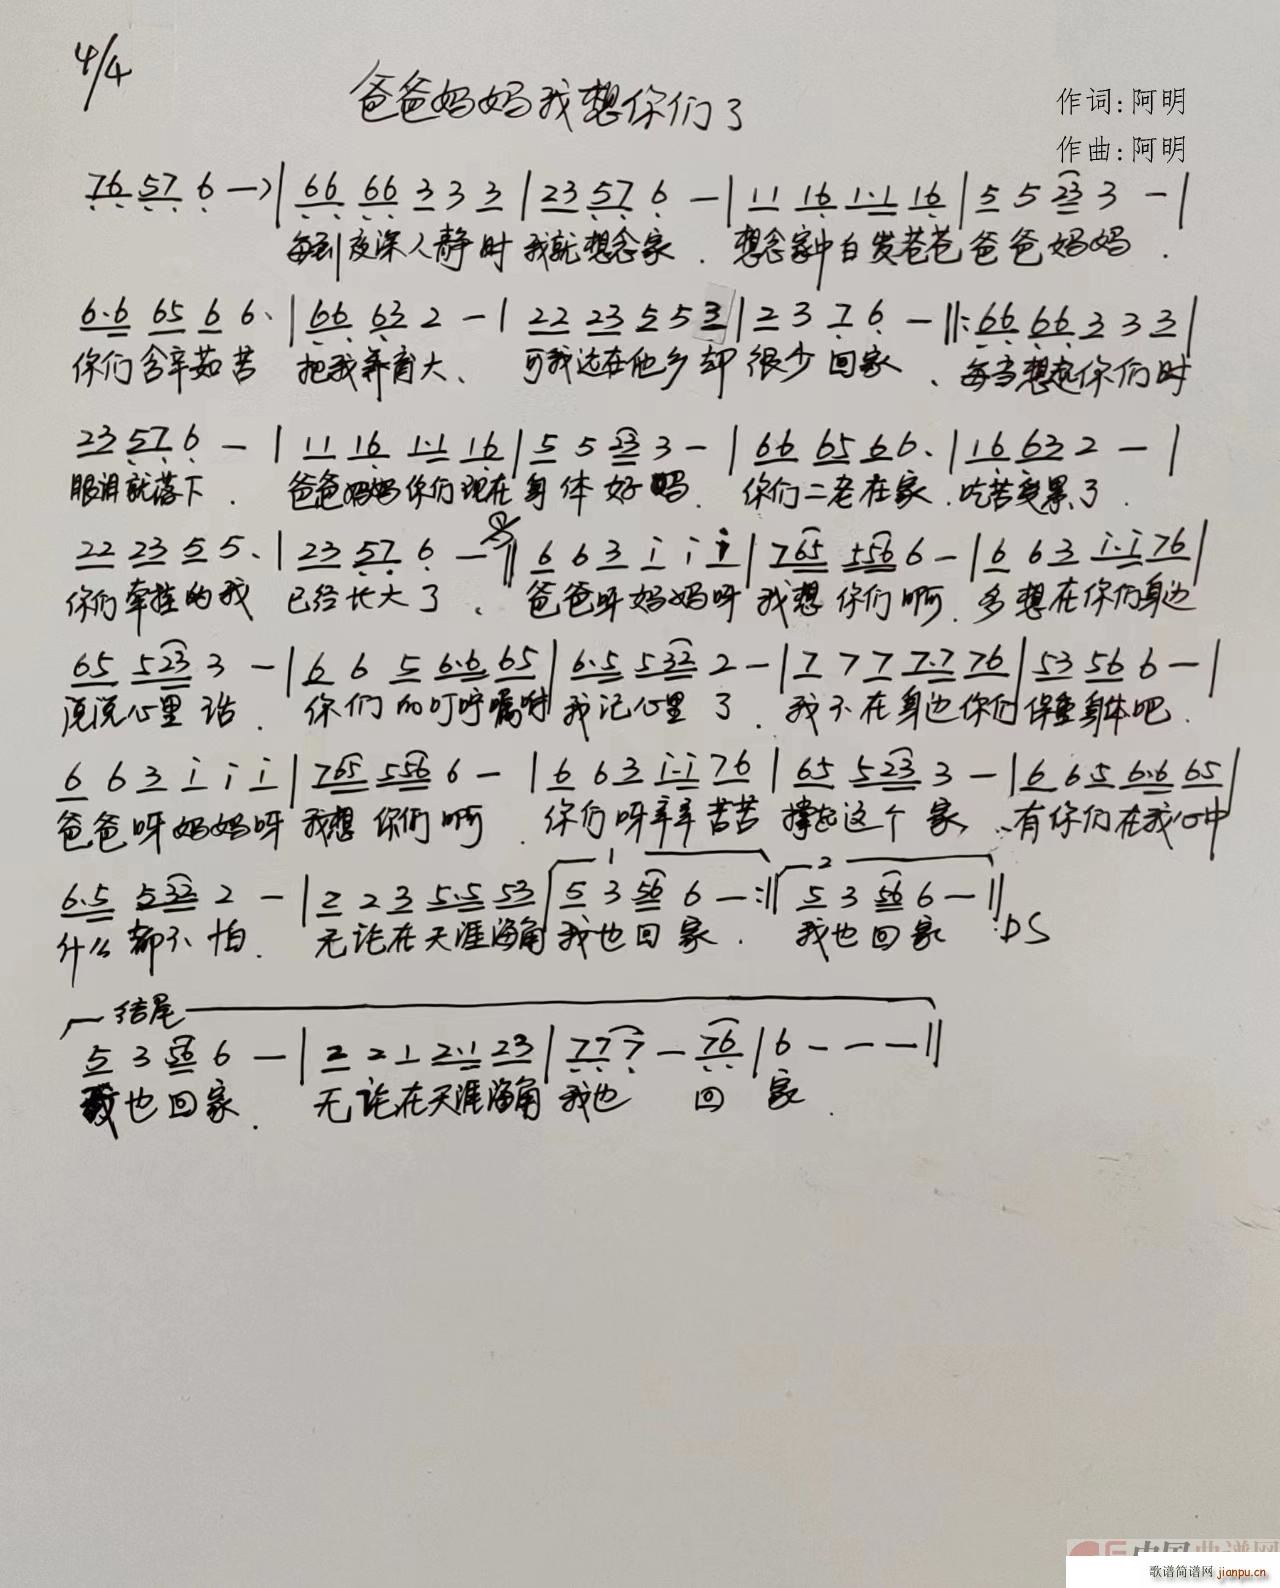 4/4
爸爸妈妈我想你们了
作词:阿明
作曲:阿明
76 57 6 — | 66 66 3 3 3 | 23 57 6 — | 11 16 1·1 16 | 5 5 23 3 — |
每到夜深人静时 我就想念家. 想念家中白发苍苍爸爸妈妈.
6·6 65 6 6· | 66 63 2 — | 22 23 5 5 3 | 2 3 7 6 — ‖: 66 66 3 3 3 |
你们含辛茹苦 把我养育大、 可我远在他乡却很少回家、每当想起你们时
23 57 6 — | 11 16 1·1 16 | 5 5 23 3 — | 66 65 6 6· | 16 63 2 — |
眼泪就落下. 爸爸妈妈你们现在身体好吗. 你们二老在家.吃苦受累了.
22 23 5 5· | 23 57 6 — ‖ 6 6 3 i i i | 765 556 6 — | 6 6 3 i·i 76 |
你们牵挂的我 已经长大了、 爸爸呀妈妈呀 我想你们啊.多想在你们身边
65 523 3 — | 6 6 5 6·6 65 | 6·5 532 2 — | 7 7 7 7·7 76 | 53 56 6 — |
说说心里话. 你们的叮咛嘱咐我记心里了. 我不在身边你们保重身体吧.
6 6 3 i i i | 765 556 6 — | 6 6 3 i·i 76 | 65 523 3 — | 6 6 5 6·6 65 |
爸爸呀妈妈呀 我想你们啊. 你们呀辛辛苦苦 撑起这个家、有你们在我心中
1 2
6·5 532 2 — | 2 2 3 5·5 53 | 5 3 56 6 — :‖ 5 3 56 6 — ‖
什么都不怕. 无论在天涯海角我也回家. 我也回家 D.S
结尾
5 3 56 6 — | 2 2 1 2·1 23 | 77 7 — 76 | 6 - - — ‖
我也回家. 无论在天涯海角 我也 回 家.
歌谱简谱网 jianpu.cn